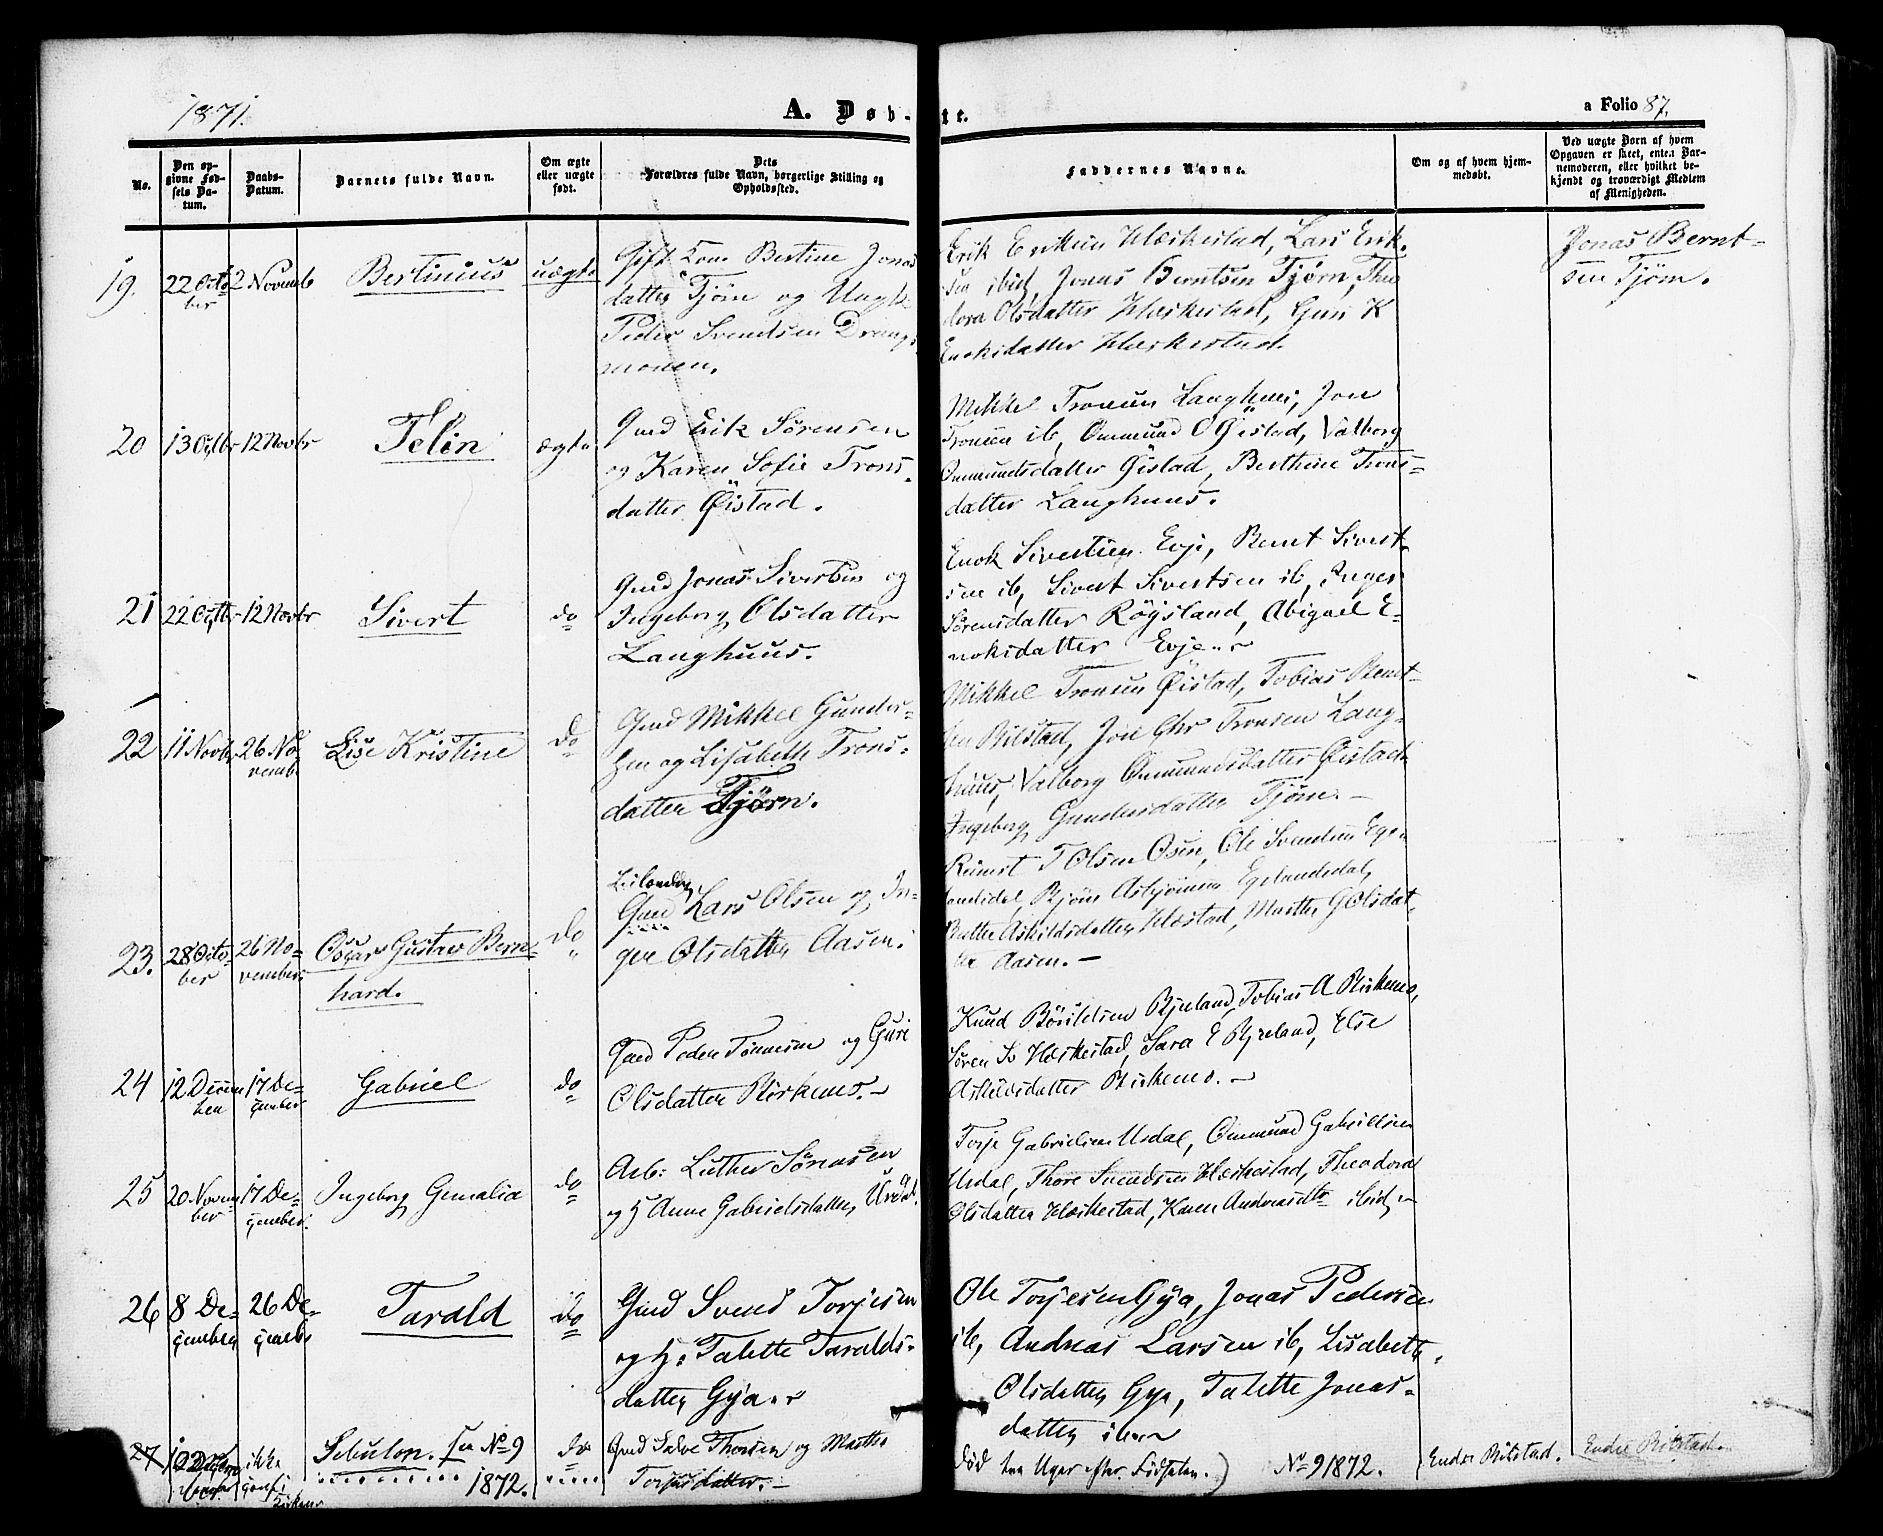 1871.
A. Døb-te.
a Folio 87.
No.
Den opgivne Fødsels Datum.
Daabs-Datum.
Barnets fulde Navn.
Om ægte eller uægte født.
Dets Forældres fulde Navn, borgerlige Stilling og Opholdssted.
Faddernes Navne.
Om og af hvem hjemmedøbt.
Ved uægte Born af hvem Opgaven er skeet, enten Barnemoderen, eller hvilket bekjendt og troværdigt Medlem af Menigheden.
19. 22 Octo-ber 2 Novemb Bertinius uægte
Gift Kone Bertine Jonas
datter Tjørn og Ungk.
Peder Svendsen Drangs
monen.
Erik Eriksen Hæskestad, Lars Erik-
sen ibid, Jonas Berntsen Tjørn, Theo
dora Olsdatter Hæskestad, Guri K
Enoksdatter Hæskestad.
Jonas Bernt-
sen Tjørn.
20 13 Octbr 12 Novbr Telin ægte
Gmd Erik Sørensen
og Karen Sofie Trons-
datter Øistad.
Mikkel Tronsen Langhuus, Jon
Tronsen ib, Ommund O Øistad, Valborg
Ommundsdatter Øistad, Berthine Trons-
datter Langhuus.
21 22 Octbr 12 Novbr Sivert do
Gmd Jonas Sivertsen og
Ingeborg Olsdatter
Langhuus.
Enok Sivertsen Evje, Bernt Sivert-
sen ib, Sivert Sivertsen ib, Inger
Sørensdatter Røysland, Abigael E-
noksdatter Evje
22 11 Novbr 26 No-vemb. Lise Kristine do
Gmd Mikkel Gunder-
sen og Lisabeth Trons-
datter Tjørn.
Mikkel Tronsen Øistad, Tobias Bernt-
sen Bilstad, Jon Chr Tronsen Lang-
huus, Valborg Ommundsdatter Øistad
Ingeborg Gundersdatter Tjørn.
23. 28 Octo-ber 26 No-vember Oscar Gustav Bern-
hard. do
Leilændg
Gmd Lars Olsen og In-
ger Olsdatter Aasen.
T Olsen Osen, Ole Svendsen Ege-
landsdal, Bjørn Asbjørnsen Egelandsdal,
Berthe Askildsdatter Hæstad, Marthe G Olsdat-
ter Aasen.
24 12 Decem-ber 17 De-cember Gabriel do
Gmd Peder Tønnesen og Guri
Olsdatter Birkemo.
Knud Bårildsen Bjuland, Tobias A Birkemo,
Søren S Hæskestad, Sara E Bjuland, Else
Askildsdatter Birkemo.
25 20 Novem-ber 17 De-cember. Ingeborg Gemalia do
Arb: Luther Sørensen
og H Anne Gabrielsdatter Urdal.
Torje Gabrielsen Urdal, Ommund Gabrielsen
Urdal, Thore Svendsen Hæskestad, Theodora
Olsdatter Hæskestad, Karen Andreasdtr ibid
26 8 De-cember 26 De-cembr Tarald do
Gmd Svend Torjesen
og H: Talette Taralds-
datter Gya
Ole Torjesen Gya, Jonas Pedersen
ib, Andreas Larsen ib, Lisabeth
Olsdatter Gya, Talette Jonas-
datter ibid
27 ikke Sebulon. See No 9
1872. do
Gmd Salve Thorsen og Marthe
Torjesdatter.
Død tre Uger efter Fødselen.) No 9 1872.
Endre Bilstad.
Endre Bilstad